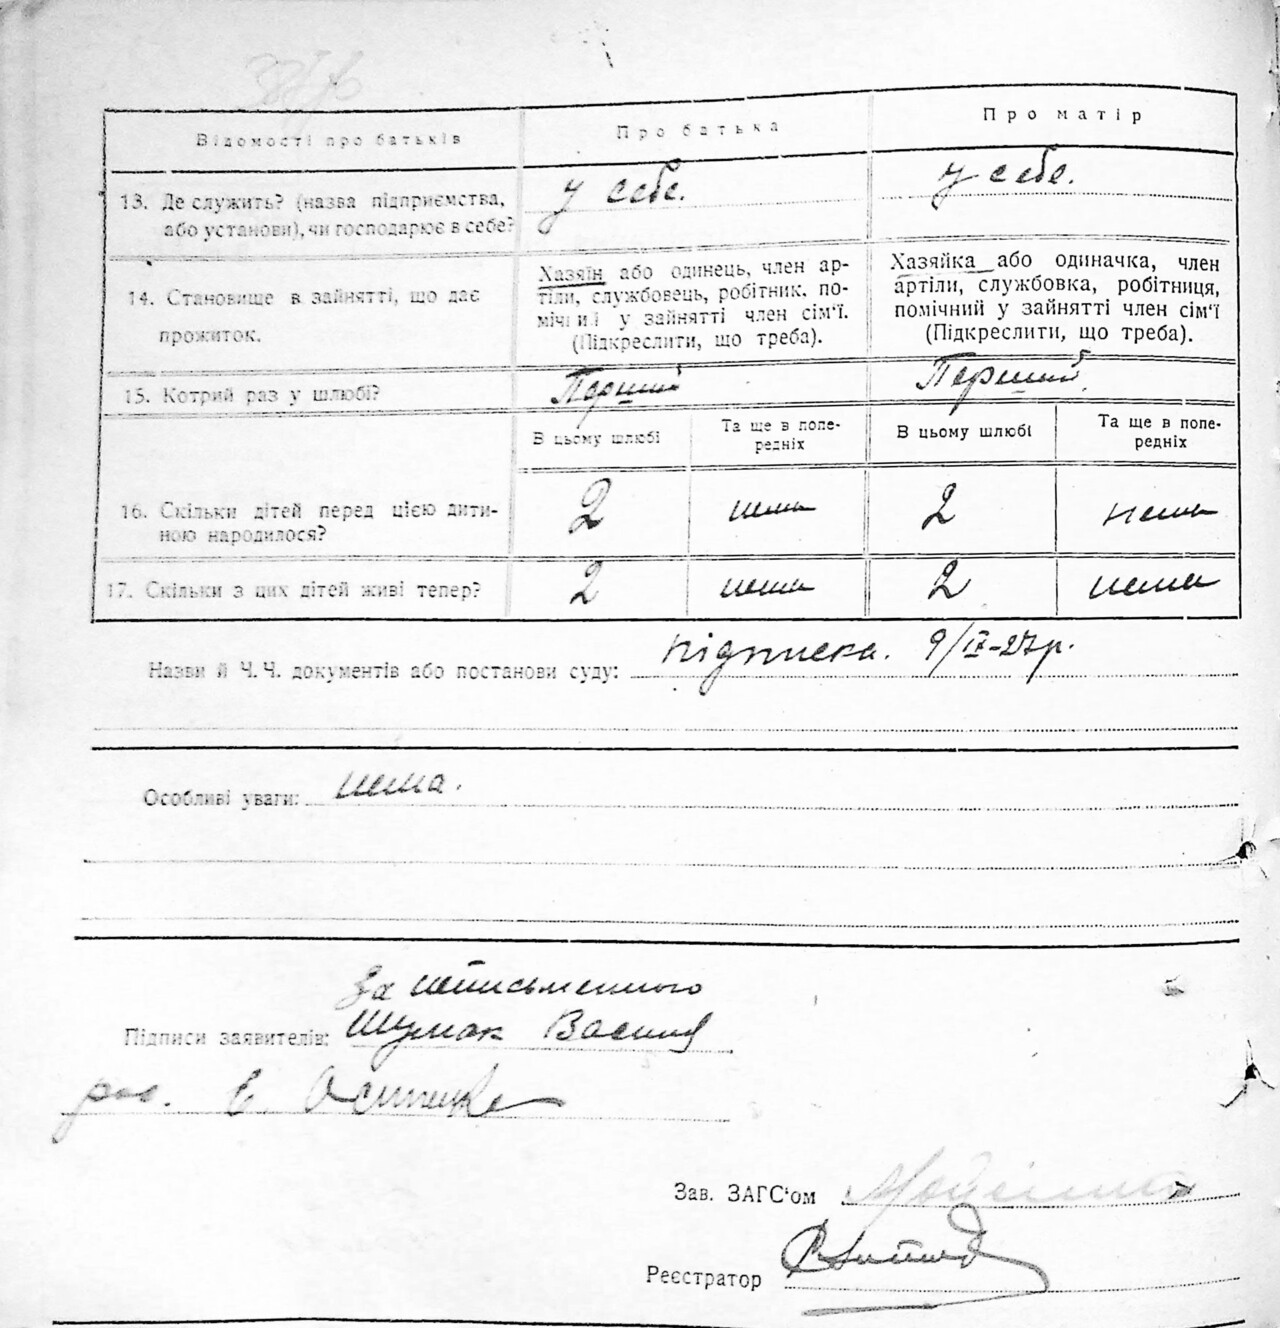 Відомості про батьків
Про батька
Про матір
13. Де служить? (назва підприємства, або установи), чи господарює в себе?
у себе.
у себе.
14. Становище в зайнятті, що дає прожиток.
Хазяїн або одинець, член ар-
тіли, службовець, робітник, по-
мічний у зайнятті член сім'ї.
(Підкреслити, що треба).
Хазяйка або одиначка, член
артіли, службовка, робітниця,
помічний у зайнятті член сім'ї
(Підкреслити, що треба).
15. Котрий раз у шлюбі?
Перший
Перший.
В цьому шлюбі
Та ще в попе-
редніх
В цьому шлюбі
Та ще в попе-
редніх
16. Скільки дітей перед цією дити-
ною народилося?
2 нема 2 нема
17. Скільки з цих дітей живі тепер?
2 нема 2 нема
Назви й Ч.Ч. документів або постанови суду: підписка. 9/IX-27р.
Особливі уваги: нема.
За неписьменного
Підписи заявителів: Шумак Василя
рос. Е.
Зав. ЗАГС'ом
Реєстратор